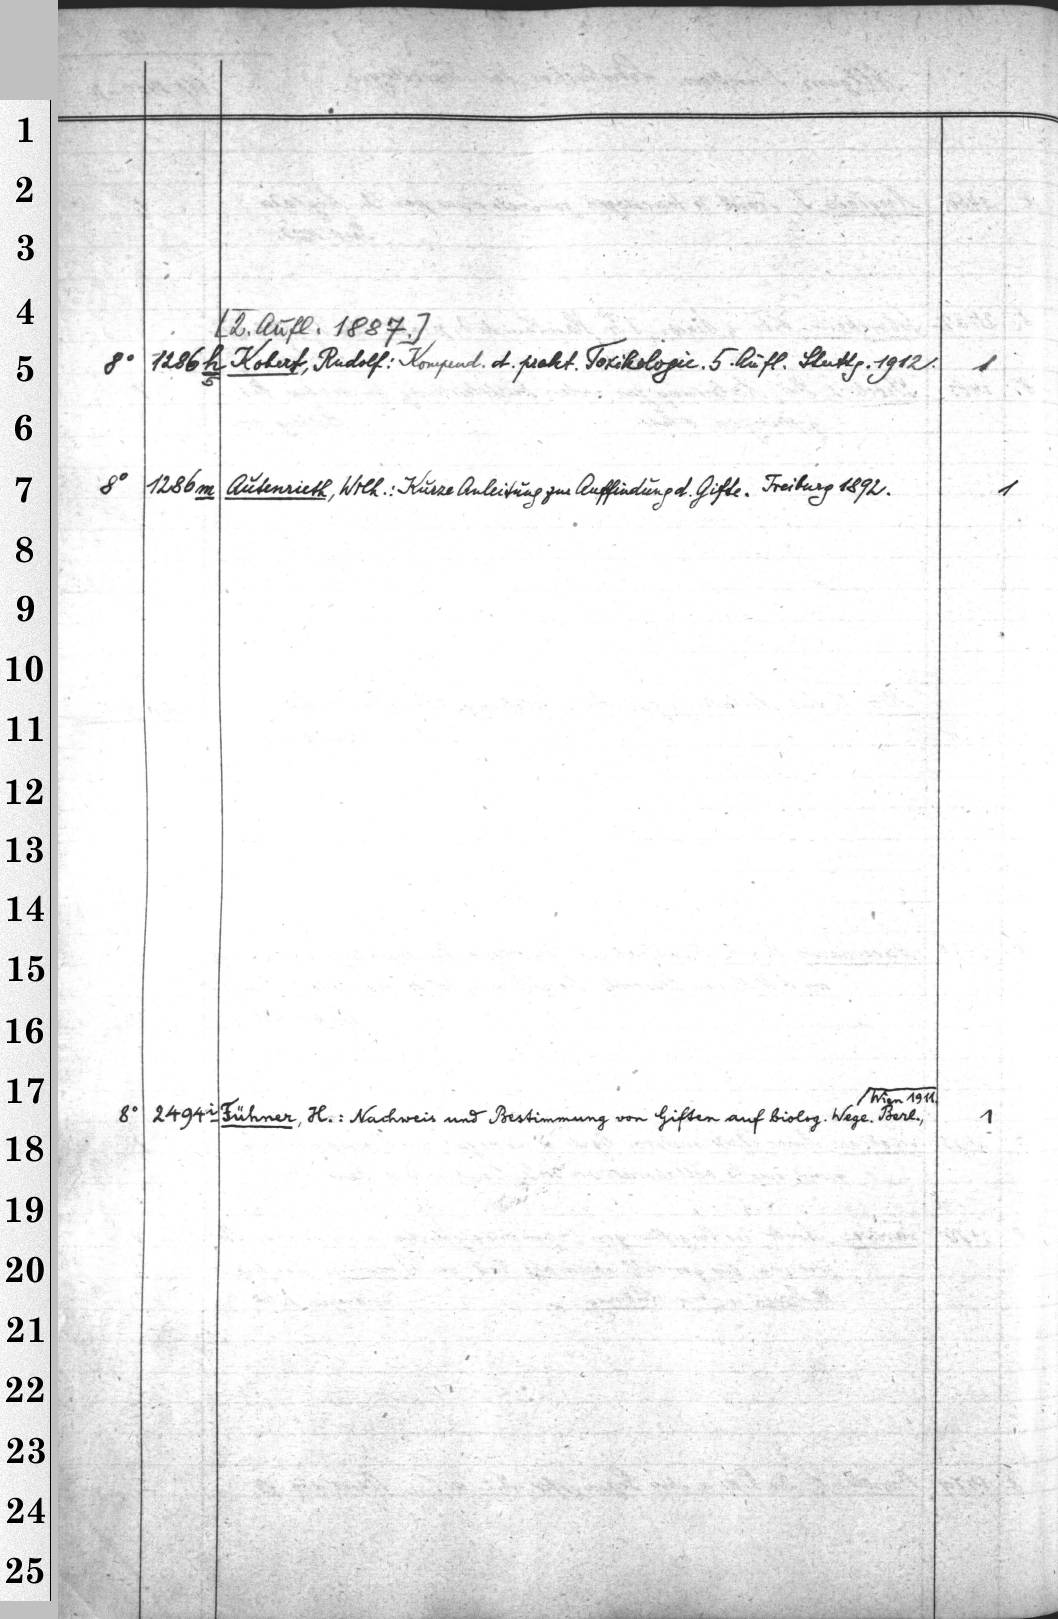 1
2
3
4
[2. Aufl. 1887.]
5
8° 1286 h/5 Kobert, Rudolf: Kompend. d. prakt. Toxikologie. 5. Aufl. Stuttg. 1912. 1
6
7
8° 1286 m Autenrieth, Wilh.: Kurze Anleitung zur Auffindung d. Gifte. Freiburg 1892. 1
8
9
10
11
12
13
14
15
16
17
Wien 1911.
8° 2494 i Führner, H.: Nachweis und Bestimmung von Giften auf biolog. Wege. Berl., 1
18
19
20
21
22
23
24
25